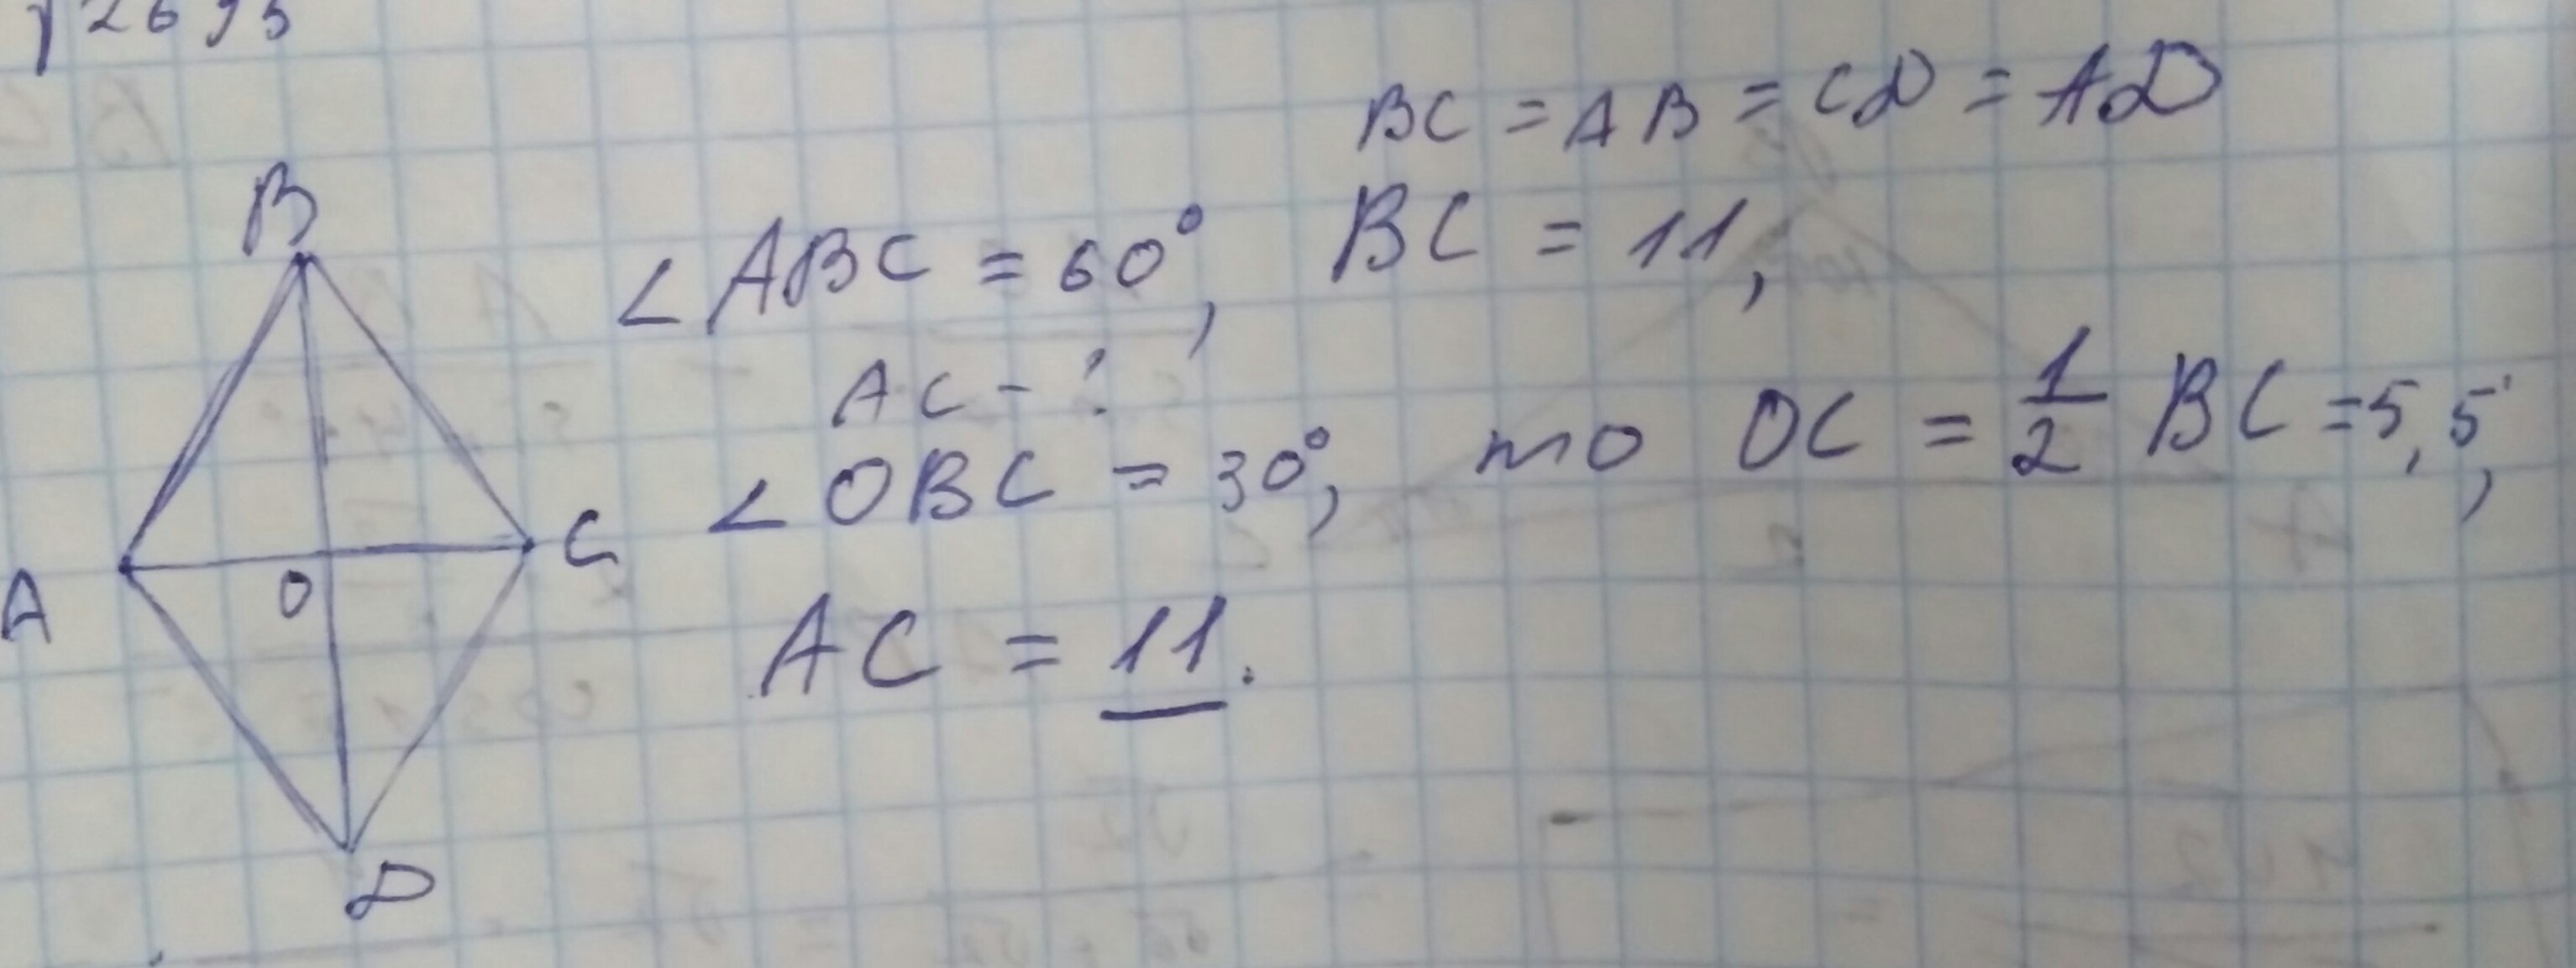 BC = AB = CD = AD
B
∠ABC = 60°, BC = 11,
AC - ?
∠OBC = 30°, то OC = 1/2 BC = 5,5,
A O C
AC = 11.
D